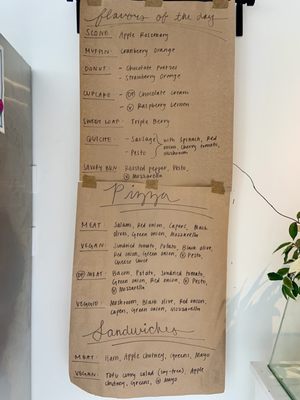 flavors of the day
SCONE: Apple Rosemary
MUFFIN: Cranberry Orange
DONUT: - Chocolate
- Strawberry Orange
CUPCAKE: - GF Chocolate cream
- V Raspberry Lemon
SWEET LOAF: Triple Berry
QUICHE: - Sausage with Spinach, Red
- Pesto onion, cherry tomato,
mushroom
SAVORY BUN: Roasted pepper, Pesto,
V Mozzarella
Pizza
MEAT: Salami, Red onion, Capers, Black
olives, Green onion, Mozzarella
VEGAN: Sundried tomato, Potato, Black olive,
Red onion, Green onion, V Pesto,
Cheese sauce
GF MEAT: Bacon, Potato, Sundried tomato,
Green onion, Red onion, V Pesto,
V Mozzarella
VEGGIE: Mushroom, Black olive, Red onion,
Capers, Green onion, Mozzarella
Sandwiches
MEAT: Ham, Apple chutney, Greens, Mayo
VEGAN: Tofu curry salad (soy-free), Apple
chutney, Greens, V Mayo